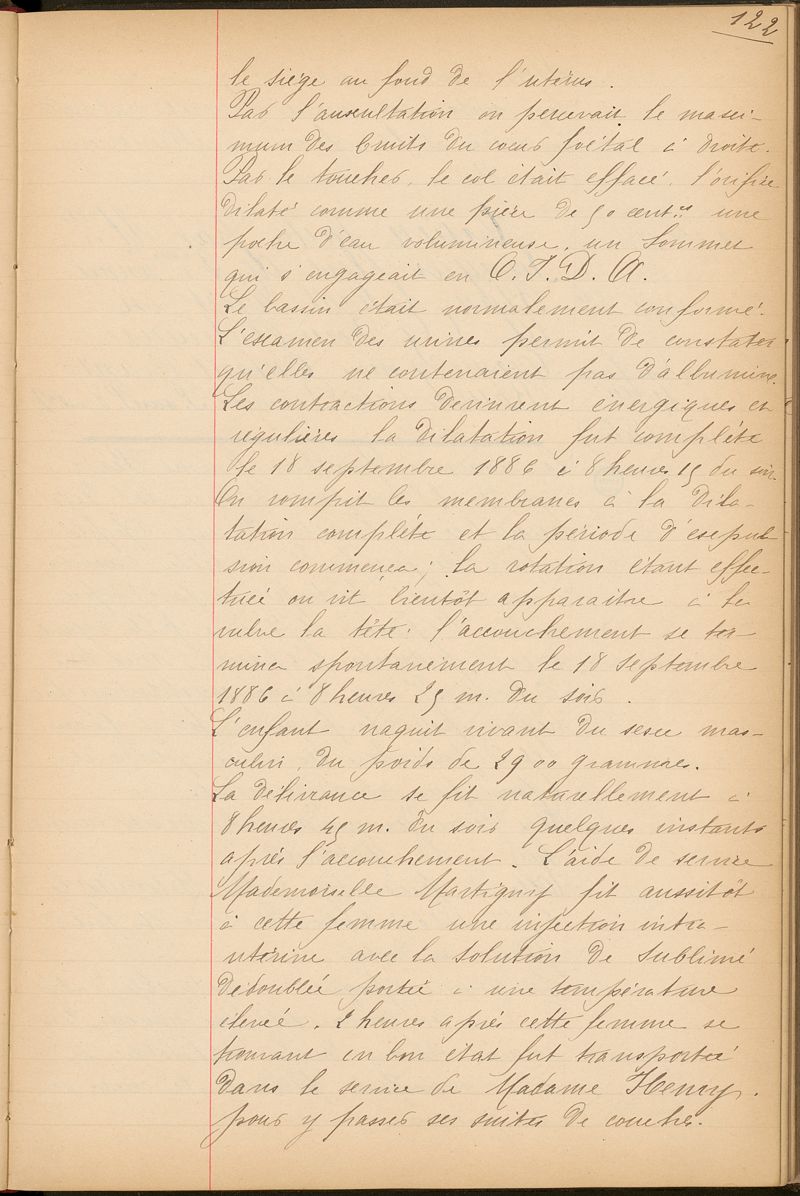 122
le siège au fond de l'utérus.
Par l'auscultation on percevait le maxi-
mum des bruits du cœur fœtal à droite.
Par le toucher, le col était effacé, l'orifice
dilaté comme une pièce de 50 cent.es une
poche d'eau volumineuse, un sommet
qui s'engageait en O. I. D. A.
Le bassin était normalement conformé.
L'examen des urines permit de constater
qu'elles ne contenaient pas d'albumine.
Les contractions devinrent énergiques et
régulières la dilatation fut complète
le 18 septembre 1886 à 8 heures 15 du soir.
On rompit les membranes à la dila-
tation complète et la période d'expul-
sion commença; la rotation étant effec-
tuée on vit bientôt apparaître à la
vulve la tête: l'accouchement se ter-
mina spontanément le 18 septembre
1886 à 8 heures 25 m. du soir.
L'enfant naquit vivant du sexe mas-
culin, du poids de 2900 grammes.
La délivrance se fit naturellement à
8 heures 45 m. du soir quelques instants
après l'accouchement. L'aide de service
Mademoiselle Martigny fit aussitôt
à cette femme une injection intra-
utérine avec la solution de sublimé
dédoublée portée à une température
élevée. 2 heures après cette femme se
trouvant en bon état fut transportée
dans le service de Madame Henry.
pour y passer ses suites de couches.